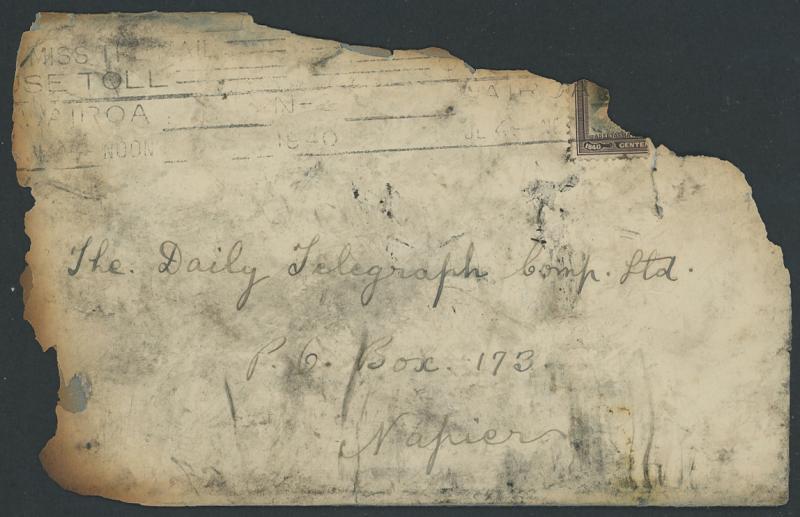 MISS THE
SE TOLL
WAIROA
NOON
1940
1840 CENTE
The. Daily Telegraph Comp. Ltd.
P. O. Box. 173.
Napier